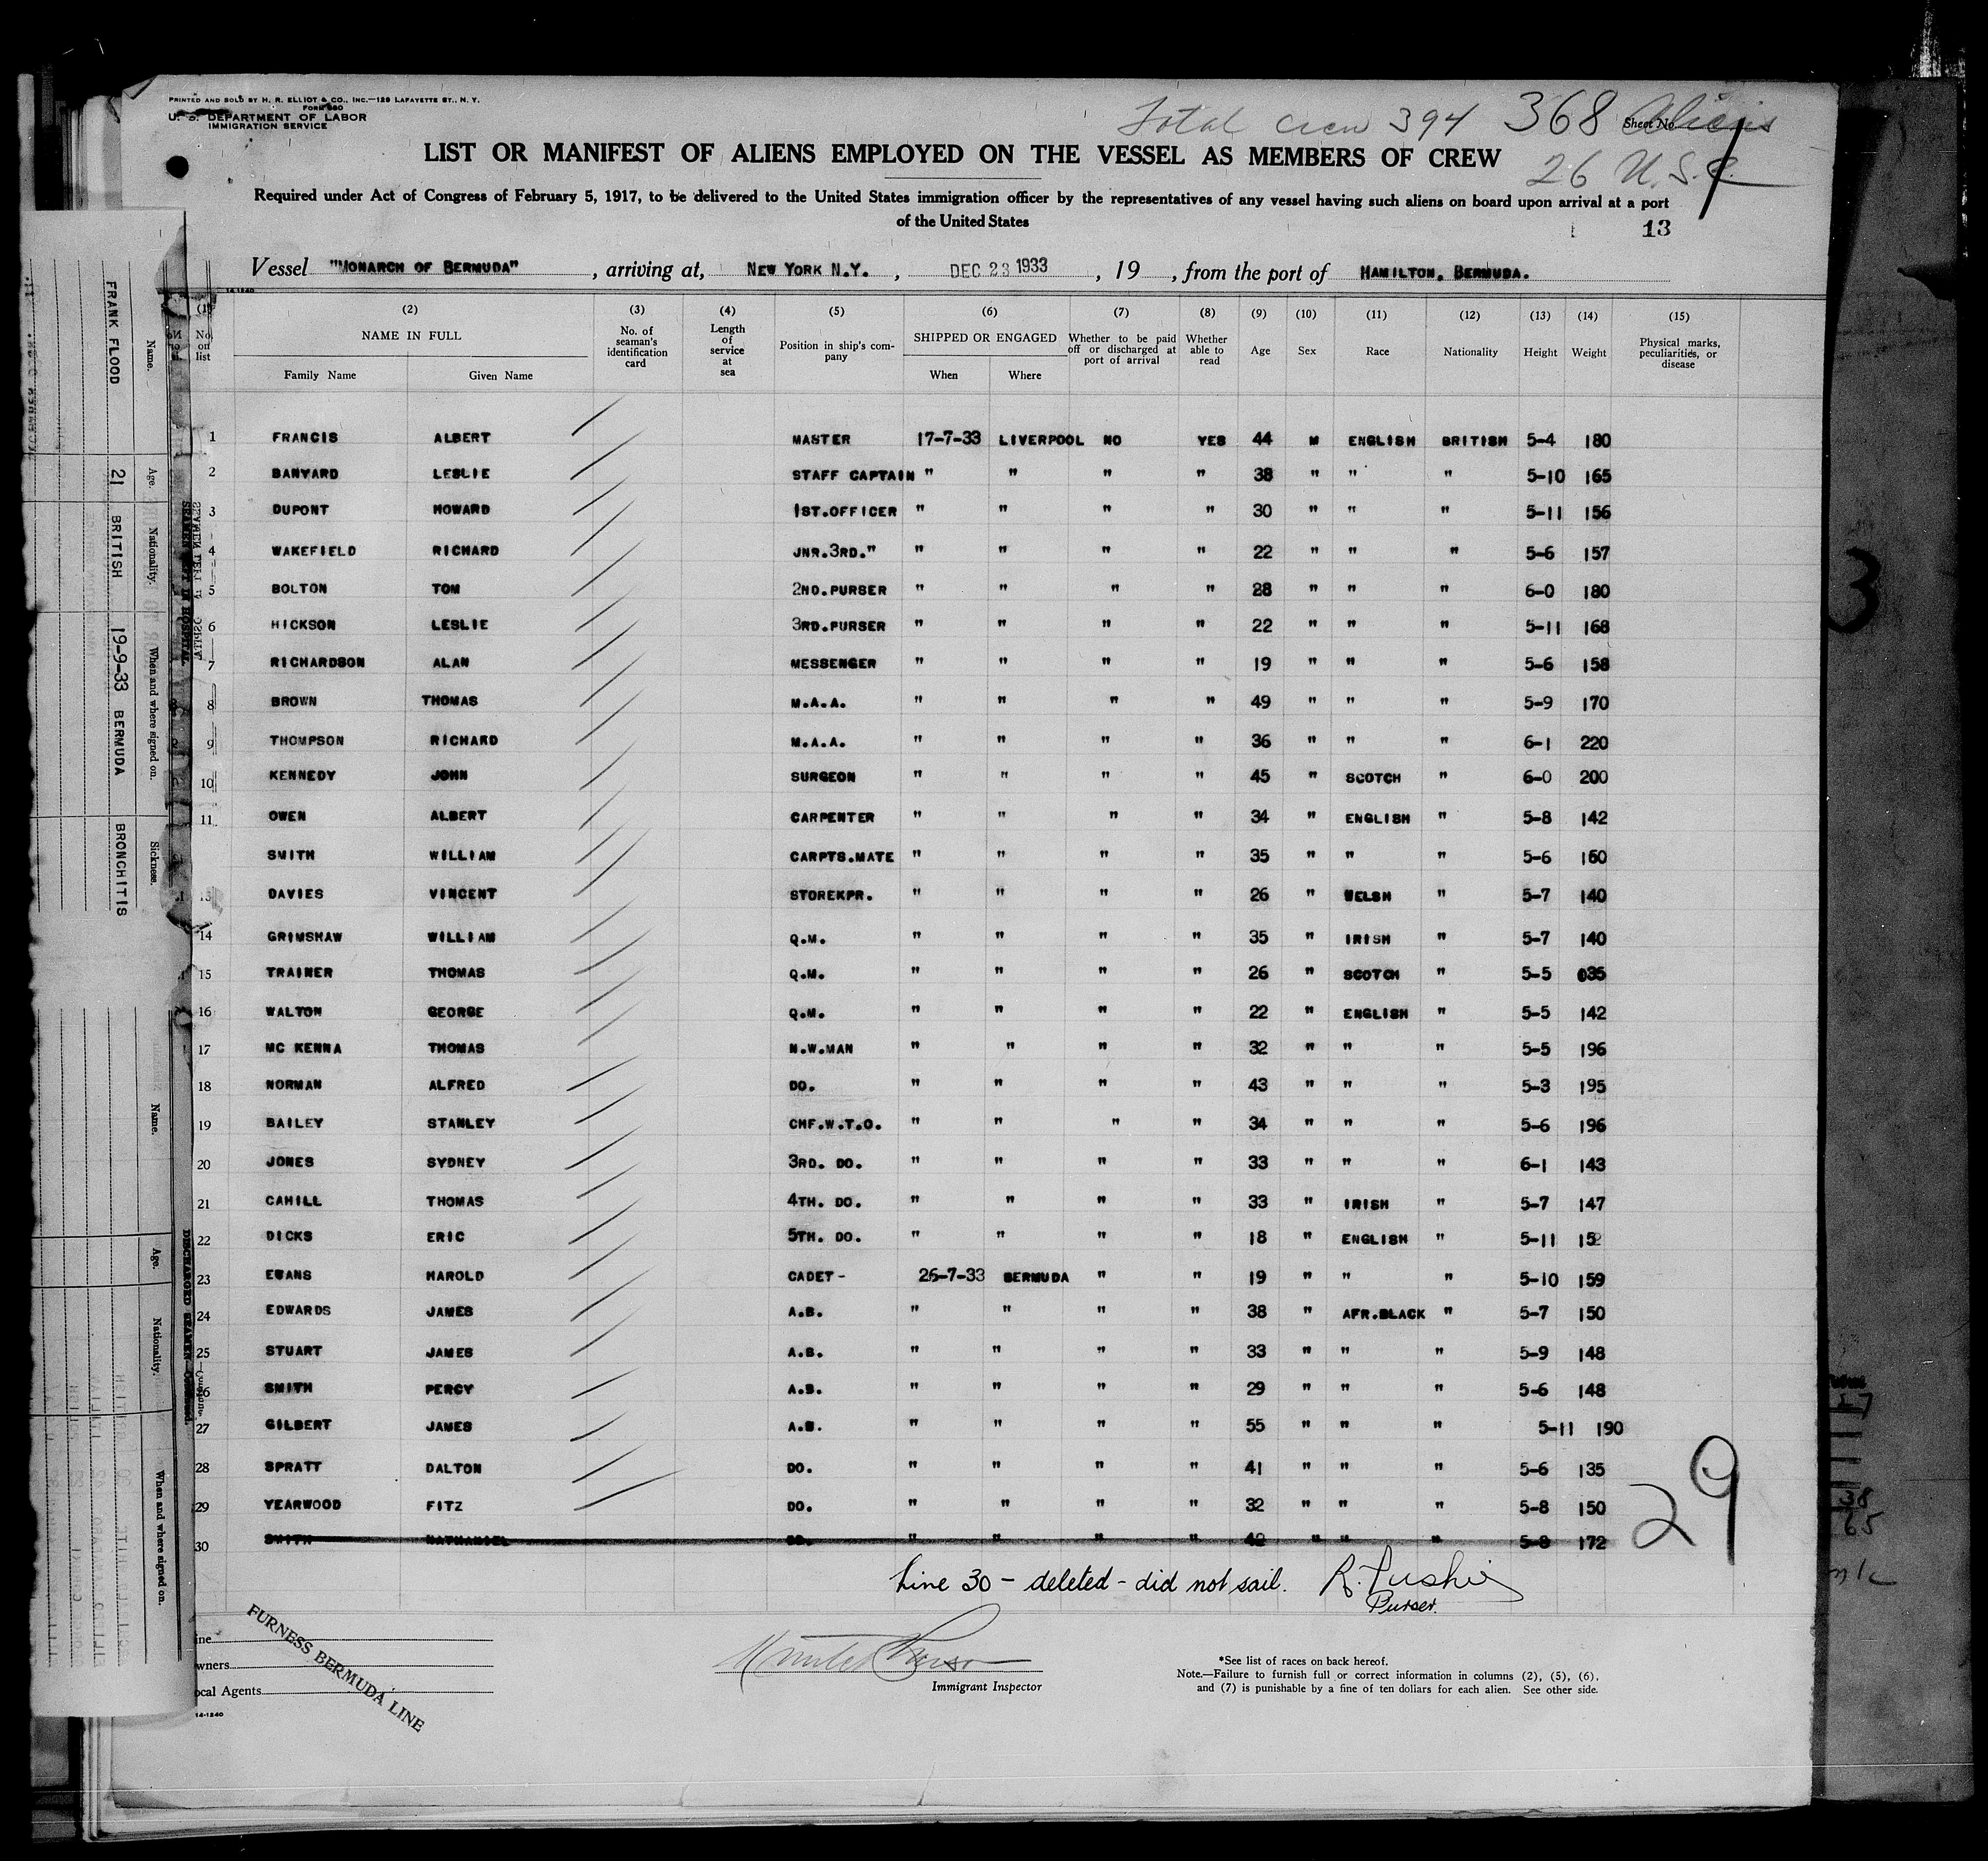 PRINTED AND SOLD BY H. R. ELLIOT & CO., INC.—129 LAFAYETTE ST., N. Y.
U. S. DEPARTMENT OF LABOR
IMMIGRATION SERVICE
Total crew 394 368 Aliens
Sheet No. 1
26 U.S.C.
LIST OR MANIFEST OF ALIENS EMPLOYED ON THE VESSEL AS MEMBERS OF CREW
Required under Act of Congress of February 5, 1917, to be delivered to the United States immigration officer by the representatives of any vessel having such aliens on board upon arrival at a port
of the United States
13
Vessel "MONARCH OF BERMUDA", arriving at, NEW YORK N.Y., DEC 23 1933, 19, from the port of HAMILTON, BERMUDA.
14-1240
(1) (2) (3) (4) (5) (6) (7) (8) (9) (10) (11) (12) (13) (14) (15)
No. on list NAME IN FULL Family Name Given Name No. of seaman's identification card Length of service at sea Position in ship's company SHIPPED OR ENGAGED When Where Whether to be paid off or discharged at port of arrival Whether able to read Age Sex Race Nationality Height Weight Physical marks, peculiarities, or disease
1 FRANCIS ALBERT MASTER 17-7-33 LIVERPOOL NO YES 44 M ENGLISH BRITISH 5-4 180
2 BANYARD LESLIE STAFF CAPTAIN " " " " 38 " " " 5-10 165
3 DUPONT HOWARD 1ST.OFFICER " " " " 30 " " " 5-11 156
4 WAKEFIELD RICHARD JNR.3RD." " " " " 22 " " " 5-6 157
5 BOLTON TOM 2ND.PURSER " " " " 28 " " " 6-0 180
6 HICKSON LESLIE 3RD.PURSER " " " " 22 " " " 5-11 168
7 RICHARDSON ALAN MESSENGER " " " " 19 " " " 5-6 158
8 BROWN THOMAS M.A.A. " " " " 49 " " " 5-9 170
9 THOMPSON RICHARD M.A.A. " " " " 36 " " " 6-1 220
10 KENNEDY JOHN SURGEON " " " " 45 " SCOTCH " 6-0 200
11 OWEN ALBERT CARPENTER " " " " 34 " ENGLISH " 5-8 142
SMITH WILLIAM CARPTS.MATE " " " " 35 " " " 5-6 160
13 DAVIES VINCENT STOREKPR. " " " " 26 " WELSH " 5-7 140
14 GRIMSHAW WILLIAM Q.M. " " " " 35 " IRISH " 5-7 140
15 TRAINER THOMAS Q.M. " " " " 26 " SCOTCH " 5-5 035
16 WALTON GEORGE Q.M. " " " " 22 " ENGLISH " 5-5 142
17 MC KENNA THOMAS N.W.MAN " " " " 32 " " " 5-5 196
18 NORMAN ALFRED DO. " " " " 43 " " " 5-3 195
19 BAILEY STANLEY CHF.W.T.O. " " " " 34 " " " 5-6 196
20 JONES SYDNEY 3RD. DO. " " " " 33 " " " 6-1 143
21 CAHILL THOMAS 4TH. DO. " " " " 33 " IRISH " 5-7 147
22 DICKS ERIC 5TH. DO. " " " " 18 " ENGLISH " 5-11 152
23 EWANS HAROLD CADET- 26-7-33 BERMUDA " " 19 " " " 5-10 159
24 EDWARDS JAMES A.B. " " " " 38 " AFR.BLACK " 5-7 150
25 STUART JAMES A.B. " " " " 33 " " " 5-9 148
26 SMITH PERCY A.B. " " " " 29 " " " 5-6 148
27 GILBERT JAMES A.B. " " " " 55 " " " 5-11 190
28 SPRATT DALTON DO. " " " " 41 " " " 5-6 135
29 YEARWOOD FITZ DO. " " " " 32 " " " 5-8 150
30 SMITH NATHANIEL DO. " " " " 42 " " " 5-8 172
29
Line 30 - deleted - did not sail.
Purser.
Line
Owners
Local Agents
FURNESS BERMUDA LINE
14-1240
Immigrant Inspector
*See list of races on back hereof.
Note.—Failure to furnish full or correct information in columns (2), (5), (6),
and (7) is punishable by a fine of ten dollars for each alien. See other side.
Name. Age. Nationality. When and where signed on. Sickness.
FRANK FLOOD 21 BRITISH 19-9-33 BERMUDA BRONCHITIS
SEAMEN LEFT IN HOSPITAL
Name. Age. Nationality. When and where signed on.
DISCHARGED SEAMEN
3
38
65